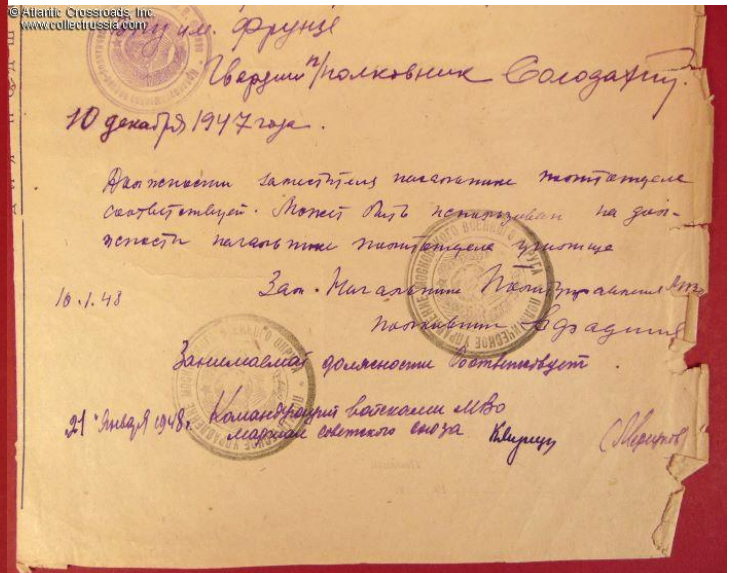 ©Atlantic Crossroads, Inc.
www.collectrussia.com
им. Фрунзе
Гвардии п/полковник
10 декабря 1947 года.
Должности заместителя начальника политотдела
соответствует. Может быть использован на долж-
ности начальника политотдела училища
16.1.48 Зам. Начальника Политуправления МВО
полковник
Занимаемой должности соответствует
21 января 1948г. Командующий войсками МВО
маршал советского союза (Мерецков)
ПОЛИТИЧЕСКОЕ УПРАВЛЕНИЕ МОСКОВСКОГО ВОЕННОГО ОКРУГА